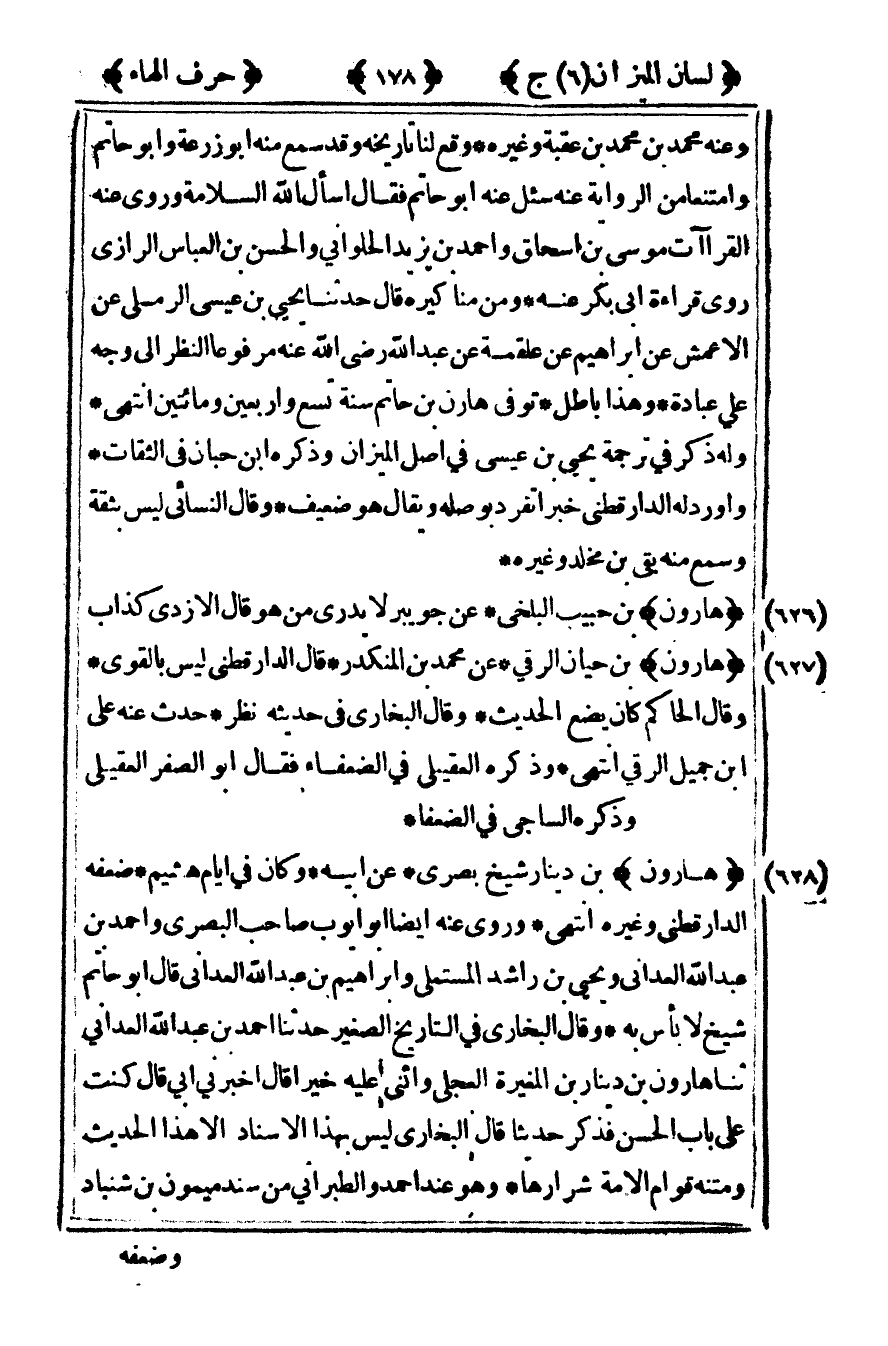 ﴿ لسان الميزان (٦) ج ﴾ ﴿ ١٧٨ ﴾ ﴿ حرف الهاء ﴾
وعنه محمد بن محمد بن عقبة وغيره * وقع لنا تاريخه وقد سمع منه ابوزرعة وابو حاتم
وامتنعا من الرواية عنه سئل عنه ابو حاتم فقال اسأل الله السلامة وروى عنه
القراآت موسى بن اسحاق واحمد بن يزيد الحلوانى والحسن بن العباس الرازى
روى قراءة ابى بكر عنه * ومن مناكيره قال حدثنا يحيى بن عيسى الرملى عن
الاعمش عن ابراهيم عن علقمة عن عبد الله رضى الله عنه مرفوعا النظر الى وجه
علي عبادة * وهذا باطل * توفى هارن بن حاتم سنة تسع واربعين ومائتين انتهى *
وله ذكر في ترجمة يحيى بن عيسى في اصل الميزان وذكره ابن حبان فى الثقات *
واورد له الدارقطنى خبرا تفرد بوصله ويقال هو ضعيف * وقال النسائى ليس بثقة
وسمع منه بقى بن مخلد وغيره *
(٦٢٦) ﴿ هارون ﴾ بن حبيب البلخى * عن جويبر لا يدرى من هو قال الازدى كذاب
(٦٢٧) ﴿ هارون ﴾ بن حيان الرقي * عن محمد بن المنكدر * قال الدارقطنى ليس بالقوى *
وقال الحاكم كان يضع الحديث * وقال البخارى فى حديثه نظر * حدث عنه على
ابن جميل الرقي انتهى * وذكره العقيلى في الضعفاء فقال ابو الصفر العقيلى
وذكره الساجى في الضعفا *
(٦٢٨) ﴿ هارون ﴾ بن دينار شيخ بصرى * عن ابيه * وكان في ايام هشيم * ضعفه
الدارقطنى وغيره انتهى * وروى عنه ايضا ابو ايوب صاحب البصرى واحمد بن
عبدالله العدانى ويحيى بن راشد المستملى وابراهيم بن عبدالله العدانى قال ابو حاتم
شيخ لا بأس به * وقال البخارى في التاريخ الصغير حدثنا احمد بن عبدالله العداني
ثنا هارون بن دينار بن المغيرة العجلى واثنى عليه خيرا قال اخبرني ابي قال كنت
على باب الحسن فذكر حديثا قال البخارى ليس بهذا الاسناد الا هذا الحديث
ومتنه قوام الامة شرارها * وهو عند احمد والطبرانى من سند ميمون بن شنباد
وضعفه